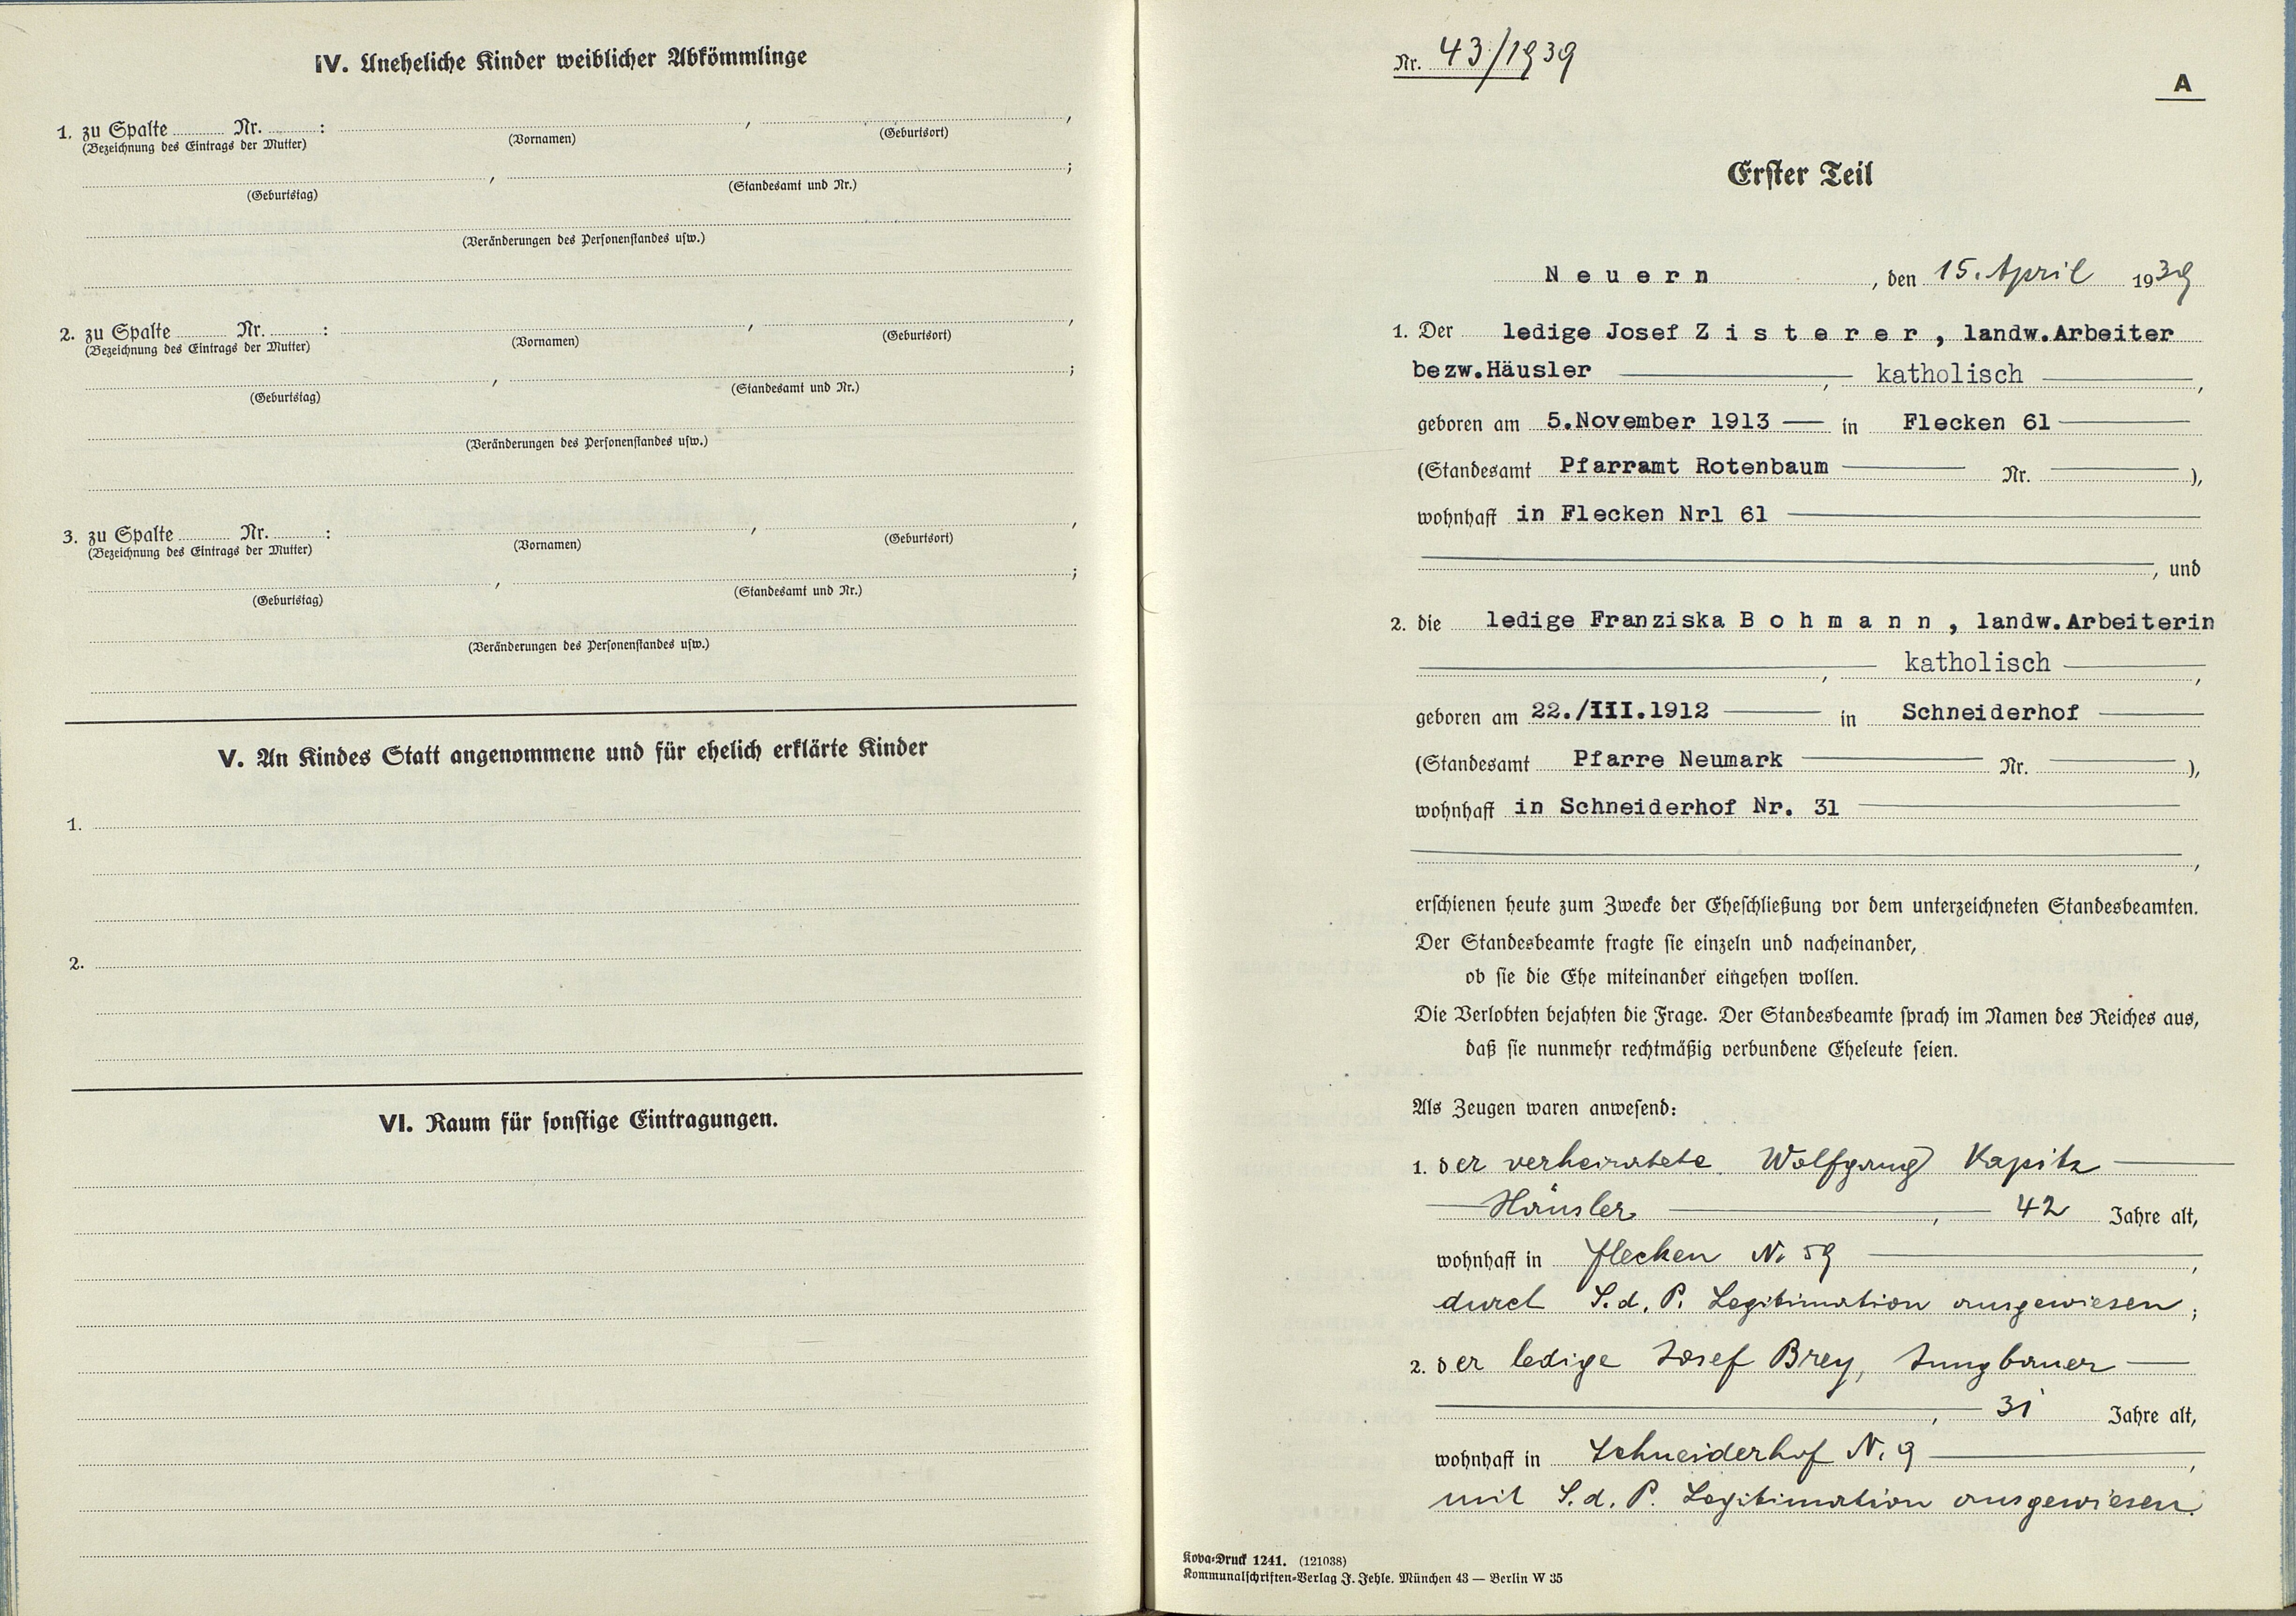 IV. Uneheliche Kinder weiblicher Abkömmlinge
1. zu Spalte ........ Nr. ........ : , ,
(Bezeichnung des Eintrags der Mutter) (Vornamen) (Geburtsort)
, ;
(Geburtstag) (Standesamt und Nr.)
(Veränderungen des Personenstandes usw.)
2. zu Spalte ........ Nr. ........ : , ,
(Bezeichnung des Eintrags der Mutter) (Vornamen) (Geburtsort)
, ;
(Geburtstag) (Standesamt und Nr.)
(Veränderungen des Personenstandes usw.)
3. zu Spalte ........ Nr. ........ : , ,
(Bezeichnung des Eintrags der Mutter) (Vornamen) (Geburtsort)
, ;
(Geburtstag) (Standesamt und Nr.)
(Veränderungen des Personenstandes usw.)
V. An Kindes Statt angenommene und für ehelich erklärte Kinder
1.
2.
VI. Raum für sonstige Eintragungen.
Nr. 43/1939
A
Erster Teil
Neuern, den 15. April 1939
1. Der ledige Josef Zisterer, landw.Arbeiter
bezw.Häusler ———, katholisch ———,
geboren am 5.November 1913 — in Flecken 61 ———
(Standesamt Pfarramt Rotenbaum ——— Nr. ———),
wohnhaft in Flecken Nrl 61 ———
———, und
2. die ledige Franziska Bohmann, landw.Arbeiterin
———, katholisch ———,
geboren am 22./III.1912 ——— in Schneiderhof ———
(Standesamt Pfarre Neumark ——— Nr. ———),
wohnhaft in Schneiderhof Nr. 31 ———
———,
erschienen heute zum Zwecke der Eheschließung vor dem unterzeichneten Standesbeamten.
Der Standesbeamte fragte sie einzeln und nacheinander,
ob sie die Ehe miteinander eingehen wollen.
Die Verlobten bejahten die Frage. Der Standesbeamte sprach im Namen des Reiches aus,
daß sie nunmehr rechtmäßig verbundene Eheleute seien.
Als Zeugen waren anwesend:
1. der verheiratete Wolfgang Kapitz ———
— Häusler ———, — 42 Jahre alt,
wohnhaft in Flecken N. 59 ———,
durch S.d.P. Legitimation ausgewiesen;
2. der ledige Josef Brey, Jungbauer —
———, — 31 Jahre alt,
wohnhaft in Schneiderhof N. 9 ———,
mit S.d.P. Legitimation ausgewiesen.
Kova-Druck 1241. (121038)
Kommunalschriften-Verlag J. Jehle, München 43 — Berlin W 35